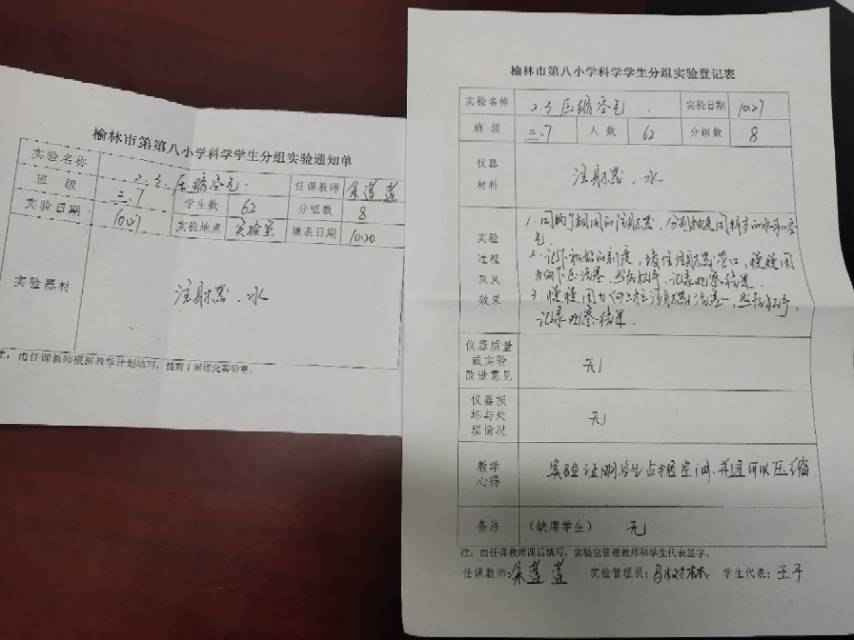 榆林市第第八小学科学学生分组实验通知单
实验名称 2.3.压缩空气. 任课教师
班级 三.7 学生数 62 分组数 8
实验日期 10.27 实验地点 实验室 填表日期 10.20
实验器材 注射器、水
注:由任课教师根据教学计划填写,提前1周送交实验室。
榆林市第八小学科学学生分组实验登记表
实验名称 2.3压缩空气. 实验日期 10.27
班级 三.7 人数 62 分组数 8
仪器材料 注射器、水
实验过程及其效果
1.用两个相同的注射器,分别抽进同样多的水和空气
2.记下初始的刻度,堵住注射器管口,慢慢用力向下压活塞,然后松手,记录观察结果
3.慢慢用力向上拉注射器活塞,然后松手,记录观察结果.
仪器质量或实验改进意见 无
仪器损坏与处理情况 无
教学心得 实验证明空气占据空间,并且可以压缩
备注 (缺席学生) 无
注:由任课教师课后填写,实验室管理教师和学生代表签字。
任课教师: 实验管理员: 学生代表:王子